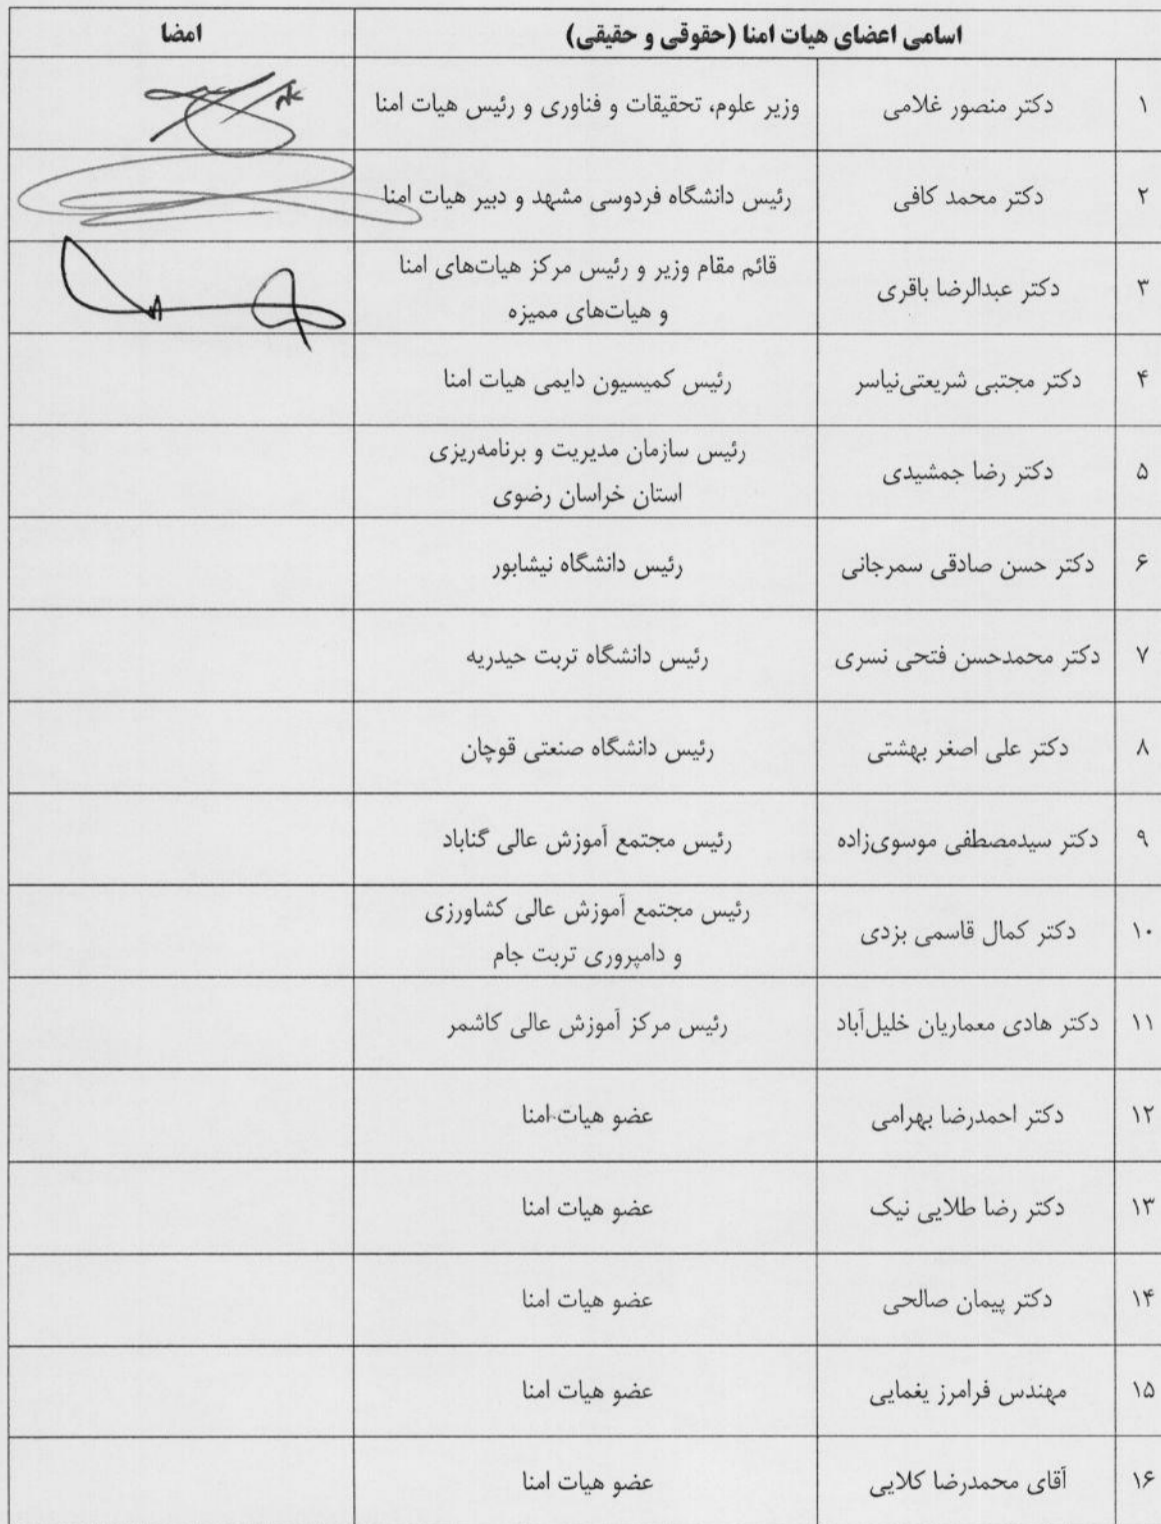 اسامی اعضای هیات امنا (حقوقی و حقیقی) امضا
۱ دکتر منصور غلامی وزیر علوم، تحقیقات و فناوری و رئیس هیات امنا
۲ دکتر محمد کافی رئیس دانشگاه فردوسی مشهد و دبیر هیات امنا
۳ دکتر عبدالرضا باقری قائم مقام وزیر و رئیس مرکز هیات‌های امنا
و هیات‌های ممیزه
۴ دکتر مجتبی شریعتی‌نیاسر رئیس کمیسیون دایمی هیات امنا
۵ دکتر رضا جمشیدی رئیس سازمان مدیریت و برنامه‌ریزی
استان خراسان رضوی
۶ دکتر حسن صادقی سمرجانی رئیس دانشگاه نیشابور
۷ دکتر محمدحسن فتحی نسری رئیس دانشگاه تربت حیدریه
۸ دکتر علی اصغر بهشتی رئیس دانشگاه صنعتی قوچان
۹ دکتر سیدمصطفی موسوی‌زاده رئیس مجتمع آموزش عالی گناباد
۱۰ دکتر کمال قاسمی بزدی رئیس مجتمع آموزش عالی کشاورزی
و دامپروری تربت جام
۱۱ دکتر هادی معماریان خلیل‌آباد رئیس مرکز آموزش عالی کاشمر
۱۲ دکتر احمدرضا بهرامی عضو هیات امنا
۱۳ دکتر رضا طلایی نیک عضو هیات امنا
۱۴ دکتر پیمان صالحی عضو هیات امنا
۱۵ مهندس فرامرز یغمایی عضو هیات امنا
۱۶ آقای محمدرضا کلایی عضو هیات امنا